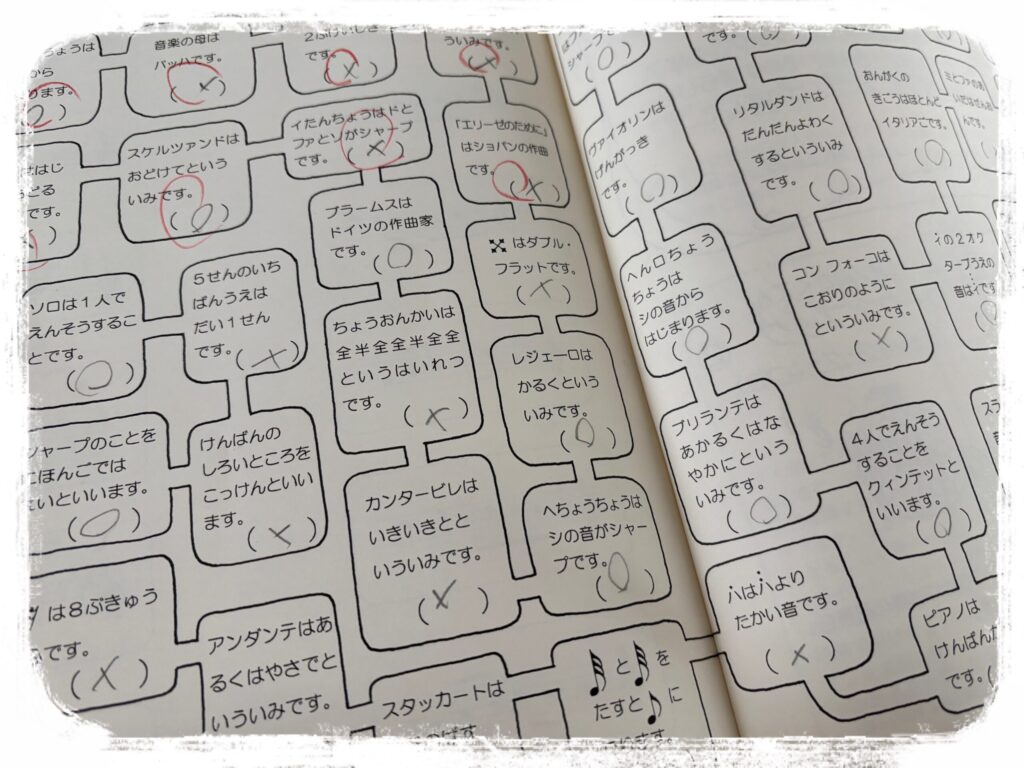 ちょうは
から
ります。
音楽の母は
バッハです。
(×)
です。
(×)
ういみです。
(×)
スケルツァンドは
おどけてという
いみです。
(○)
イたんちょうはドと
ファとソがシャープ
です。
(×)
「エリーゼのために」
はショパンの作曲
です。
(×)
ブラームスは
ドイツの作曲家
です。
(○)
はダブル・
フラットです。
(×)
ソロは1人で
えんそうするこ
とです。
(○)
5せんのいち
ばんうえは
だい1せん
です。
(×)
ちょうおんかいは
全半全全半全全
というはいれつ
です。
(×)
レジェーロは
かるくという
いみです。
(○)
シャープのことを
にほんごでは
えいといいます。
(○)
けんばんの
しろいところを
こっけんといい
ます。
(×)
カンタービレは
いきいきとと
いういみです。
(×)
へちょうちょうは
シの音がシャー
プです。
(○)
は8ぶきゅう
です。
(×)
アンダンテはあ
るくはやさでと
いういみです。
スタッカートは
と を
たすと に
なります。
シャープ
(○)
です。
(○)
ヴァイオリンは
げんがっき
です。
(○)
リタルダンドは
だんだんよわく
するといういみ
です。
(○)
おんがくの
きごうはほとんど
イタリアごです。
(○)
へんロちょう
ちょうは
シの音から
はじまります。
(○)
コン フォーコは
こおりのように
といういみです。
(×)
の2オク
ターブうえの
音は です
ブリランテは
あかるくはな
やかにという
いみです。
(○)
4人でえんそう
することを
クィンテットと
いいます。
(○)
ハはハより
たかい音です。
(×)
ピアノは
けんばん
です。